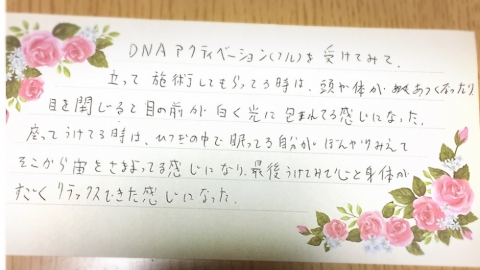 DNAアクティベーション(フル)を受けてみて、
立って施術してもらってる時は、頭や体があつくなったり
目を閉じると目の前が白く光に包まれてる感じになった。
座ってうけてる時は、ひつぎの中で眠ってる自分がぼんやりみえて
そこから宙をさまよってる感じになり、最後うけてみて心と身体が
すごくリラックスできた感じになった。